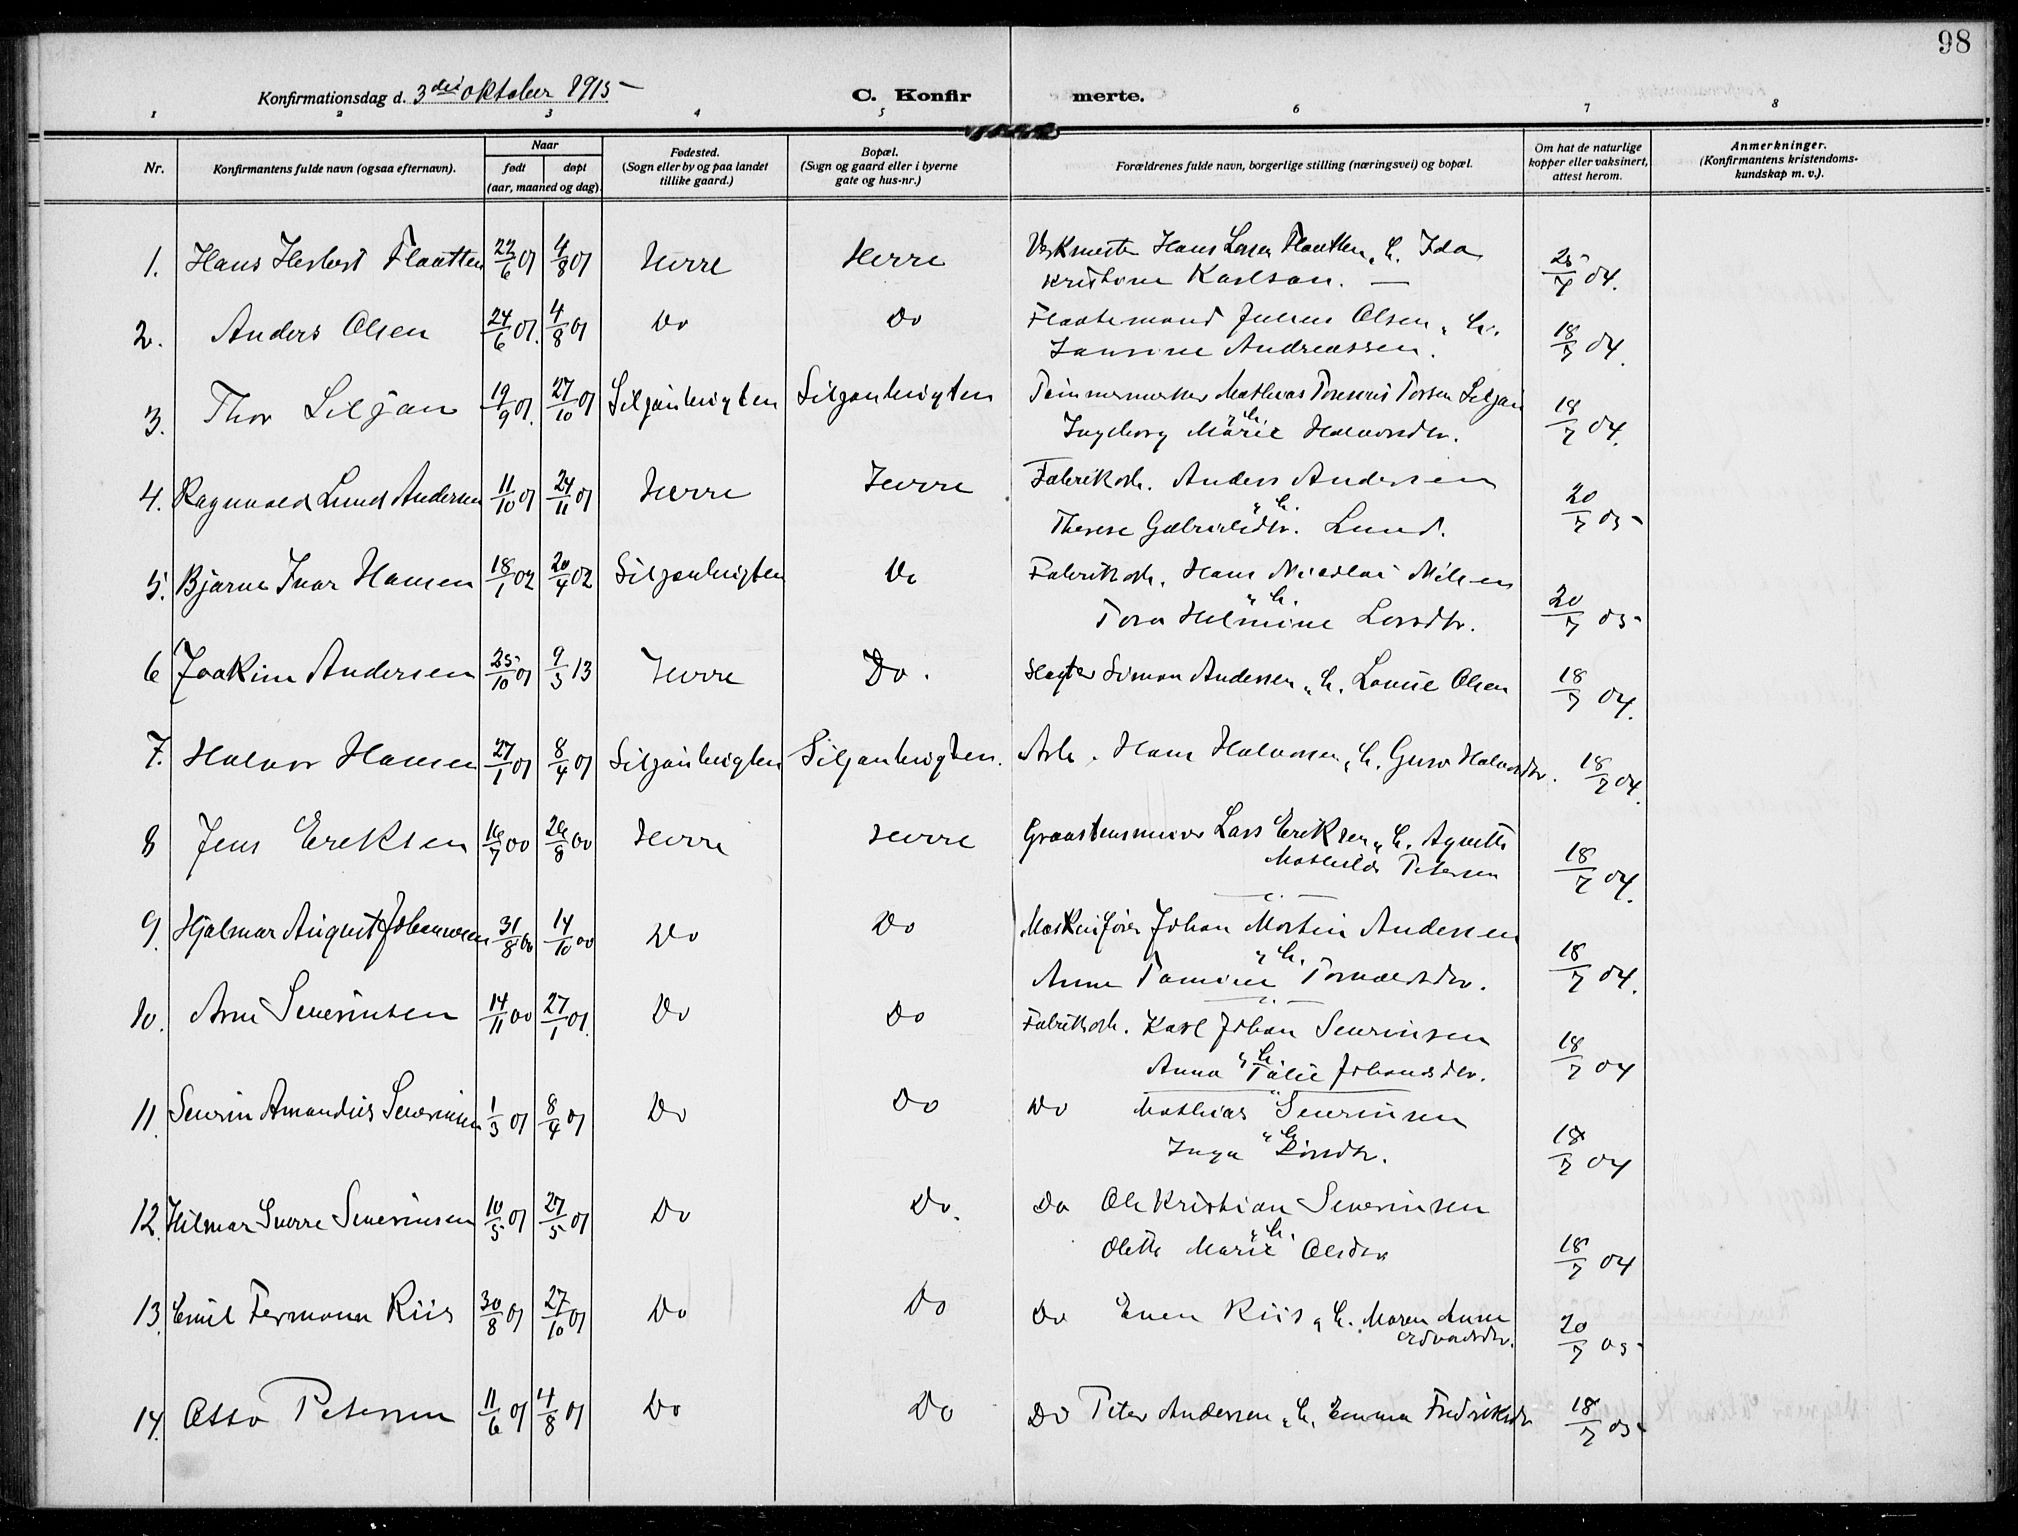 98
Konfirmationsdag d. 3die oktober 1915
C. Konfir merte.
1 2 3 4 5 6 7 8
Nr.
Konfirmantens fulde navn (ogsaa efternavn).
Naar
født døpt
(aar, maaned og dag).
Fødested.
(Sogn eller by og paa landet
tillike gaard.)
Bopæl.
(Sogn og gaard eller i byerne
gate og hus-nr.)
Forældrenes fulde navn, borgerlige stilling (næringsvei) og bopæl.
Om hat de naturlige
kopper eller vaksinert,
attest herom.
Anmerkninger.
(Konfirmantens kristendoms-
kundskap m. v.).
1. Hans Herbert Flaatten 22/6 01 4/8 01 Herre Herre Verkmester Hans Larsen Flaatten, h. Ida
Kristine Karlson. — 25/7 04.
2. Anders Olsen 24/6 01. 4/8 01 Do Do Flaatemand Julius Olsen, h.
Laurine Andreassen. 18/7 04.
3. Thor Siljan 19/9 01. 27/10 01 Siljanhvigten Siljanhvigten Tømmermerker Mathias Torsen Siljan
„ h.
Ingeborg Marie Halvorsdtr. 18/7 04.
4. Ragnvald Lund Andersen 11/10 01 24/11 01 Herre Herre Fabriksarb. Anders Andersen
„ h.
Therese Gabrielsdtr. Lund. 20/7 05
5. Bjarne Ivar Hansen 18/1 02 20/4 02 Siljanhvigten Do Fabriksarb. Hans Nicolai Nilsen
„ h.
Tora Helmine Larsdtr. 20/7 05
6 Joakim Andersen 25/10 01 9/3 13 Herre Do. Slagter Simon Andersen, h. Lovise Olsen 18/7 04.
7. Halvor Hansen 27/1 01 8/4 01 Siljanhvigten Siljanhvigten. Arb. Hans Halvorsen, h. Guro Halvorsdtr. 18/7 04.
8 Jens Eriksen 16/7 00 26/8 00 Herre Herre Graastensmurer Lars Eriksen, h. Agnethe
Mathilde Petersen 18/7 04.
9. Hjalmar August Johannesen 31/8 00 14/10 00 Do Do Maskinfører Johan Martin Andersen
„ h.
Anne Tomine Torvaldsdtr. 18/7 04.
10. Arne Severinsen 14/11 00 27/1 01. Do Do Fabriksarb. Karl Johan Severinsen
„ h.
Anna Talie Johansdtr. 18/7 04
11. Severin Amandius Severinsen 1/3 01 8/4 01 Do Do Do Mathias Severinsen
„ h.
Inga Larsdtr. 18/7 04
12. Hilmar Sverre Severinsen 10/5 01 27/5 01 Do Do. Do Ole Kristian Severinsen
„ h.
Olette Marie Olsdtr 18/7 04
13. Emil Fermann Riis 30/8 01 27/10 01 Do Do Do Even Riis, h. Maren Anne
Edvardsdtr. 20/7 05
14. Otto Petersen 11/6 01 4/8 01 Do Do Do Peter Andersen, h. Emma Fredriksdtr 18/7 05